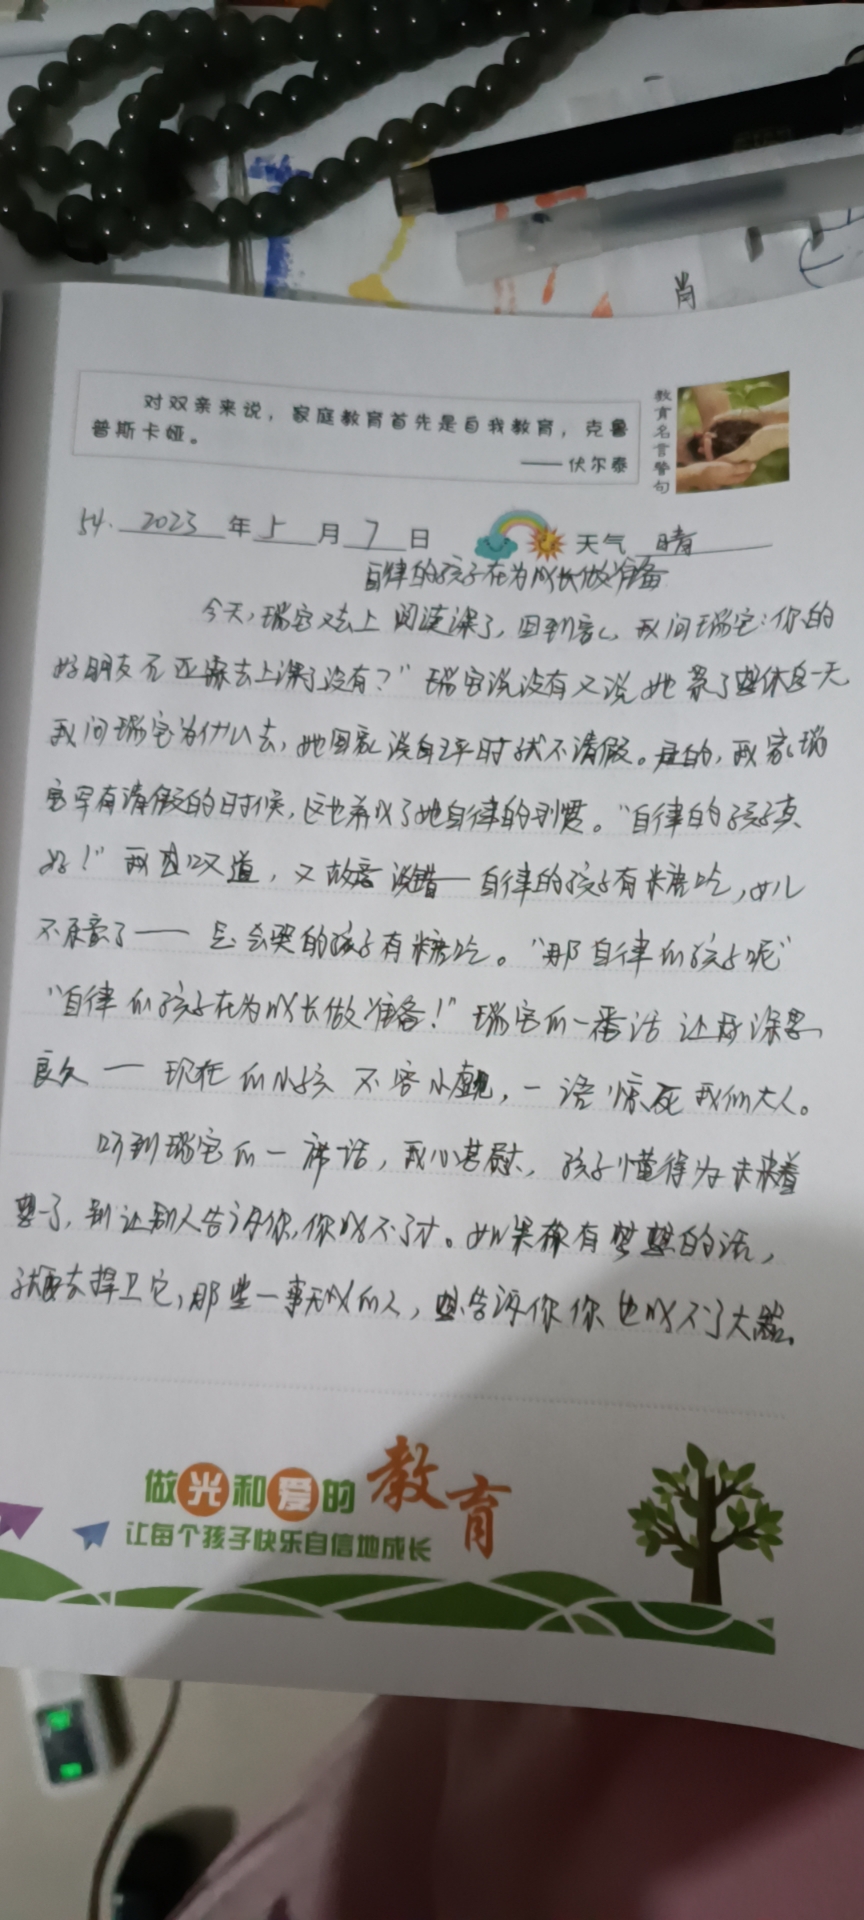 肖
对双亲来说，家庭教育首先是自我教育，克鲁
普斯卡娅。
——伏尔泰
教育名言警句
54. 2023 年 5 月 7 日 天气 晴
自律的孩子在为成长做准备
今天，瑞宝又去上阅读课了，回到家，我问瑞宝：你的
好朋友 去上课了没有？”瑞宝说没有又说她 了想休息一天
我问瑞宝为什么去，她回家说自己平时就不请假。是的，我家瑞
宝罕有请假的时候，这也养成了她自律的习惯。“自律的孩子真
好！”我感叹道，又故意说错——自律的孩子有糖吃，女儿
不愿意了—— 是会哭的孩子有糖吃。“那自律的孩子呢”
“自律的孩子在为成长做准备！”瑞宝的一番话让我深思
良久——现在的小孩不容小觑，一语惊死我们大人。
听到瑞宝的一席话，我心甚慰，孩子懂得为未来着
想了，别让别人告诉你，你成不了才。如果你有梦想的话，
就要去捍卫它，那些一事无成的人，想告诉你你也成不了大器。
做光和爱的教育
让每个孩子快乐自信地成长